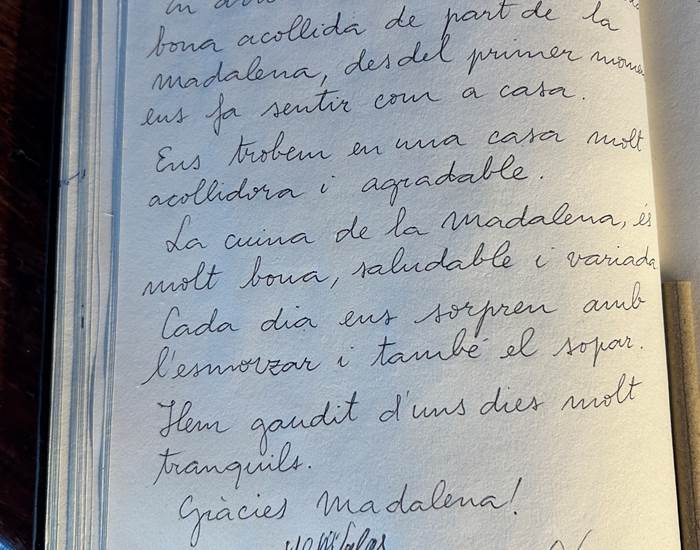 bona acollida de part de la
madalena, des del primer
ens fa sentir com a casa.
Ens trobem en una casa molt
acollidora i agradable.
La cuina de la Madalena, és
molt bona, saludable i variada
Cada dia ens sorpren amb
l'esmorzar i també el sopar.
Hem gaudit d'uns dies molt
tranquils.
Gràcies Madalena!